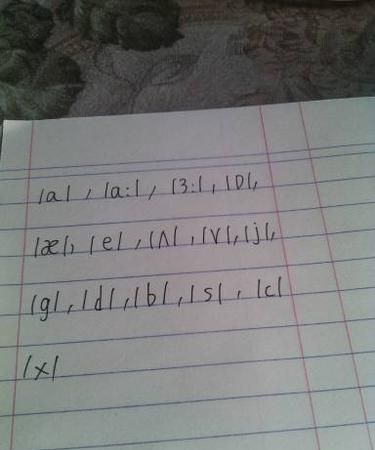 /a/, /a:/, /3:/, /ɒ/,
/æ/, /e/, /ʌ/, /v/, /j/,
/g/, /d/, /b/, /s/, /c/
/x/